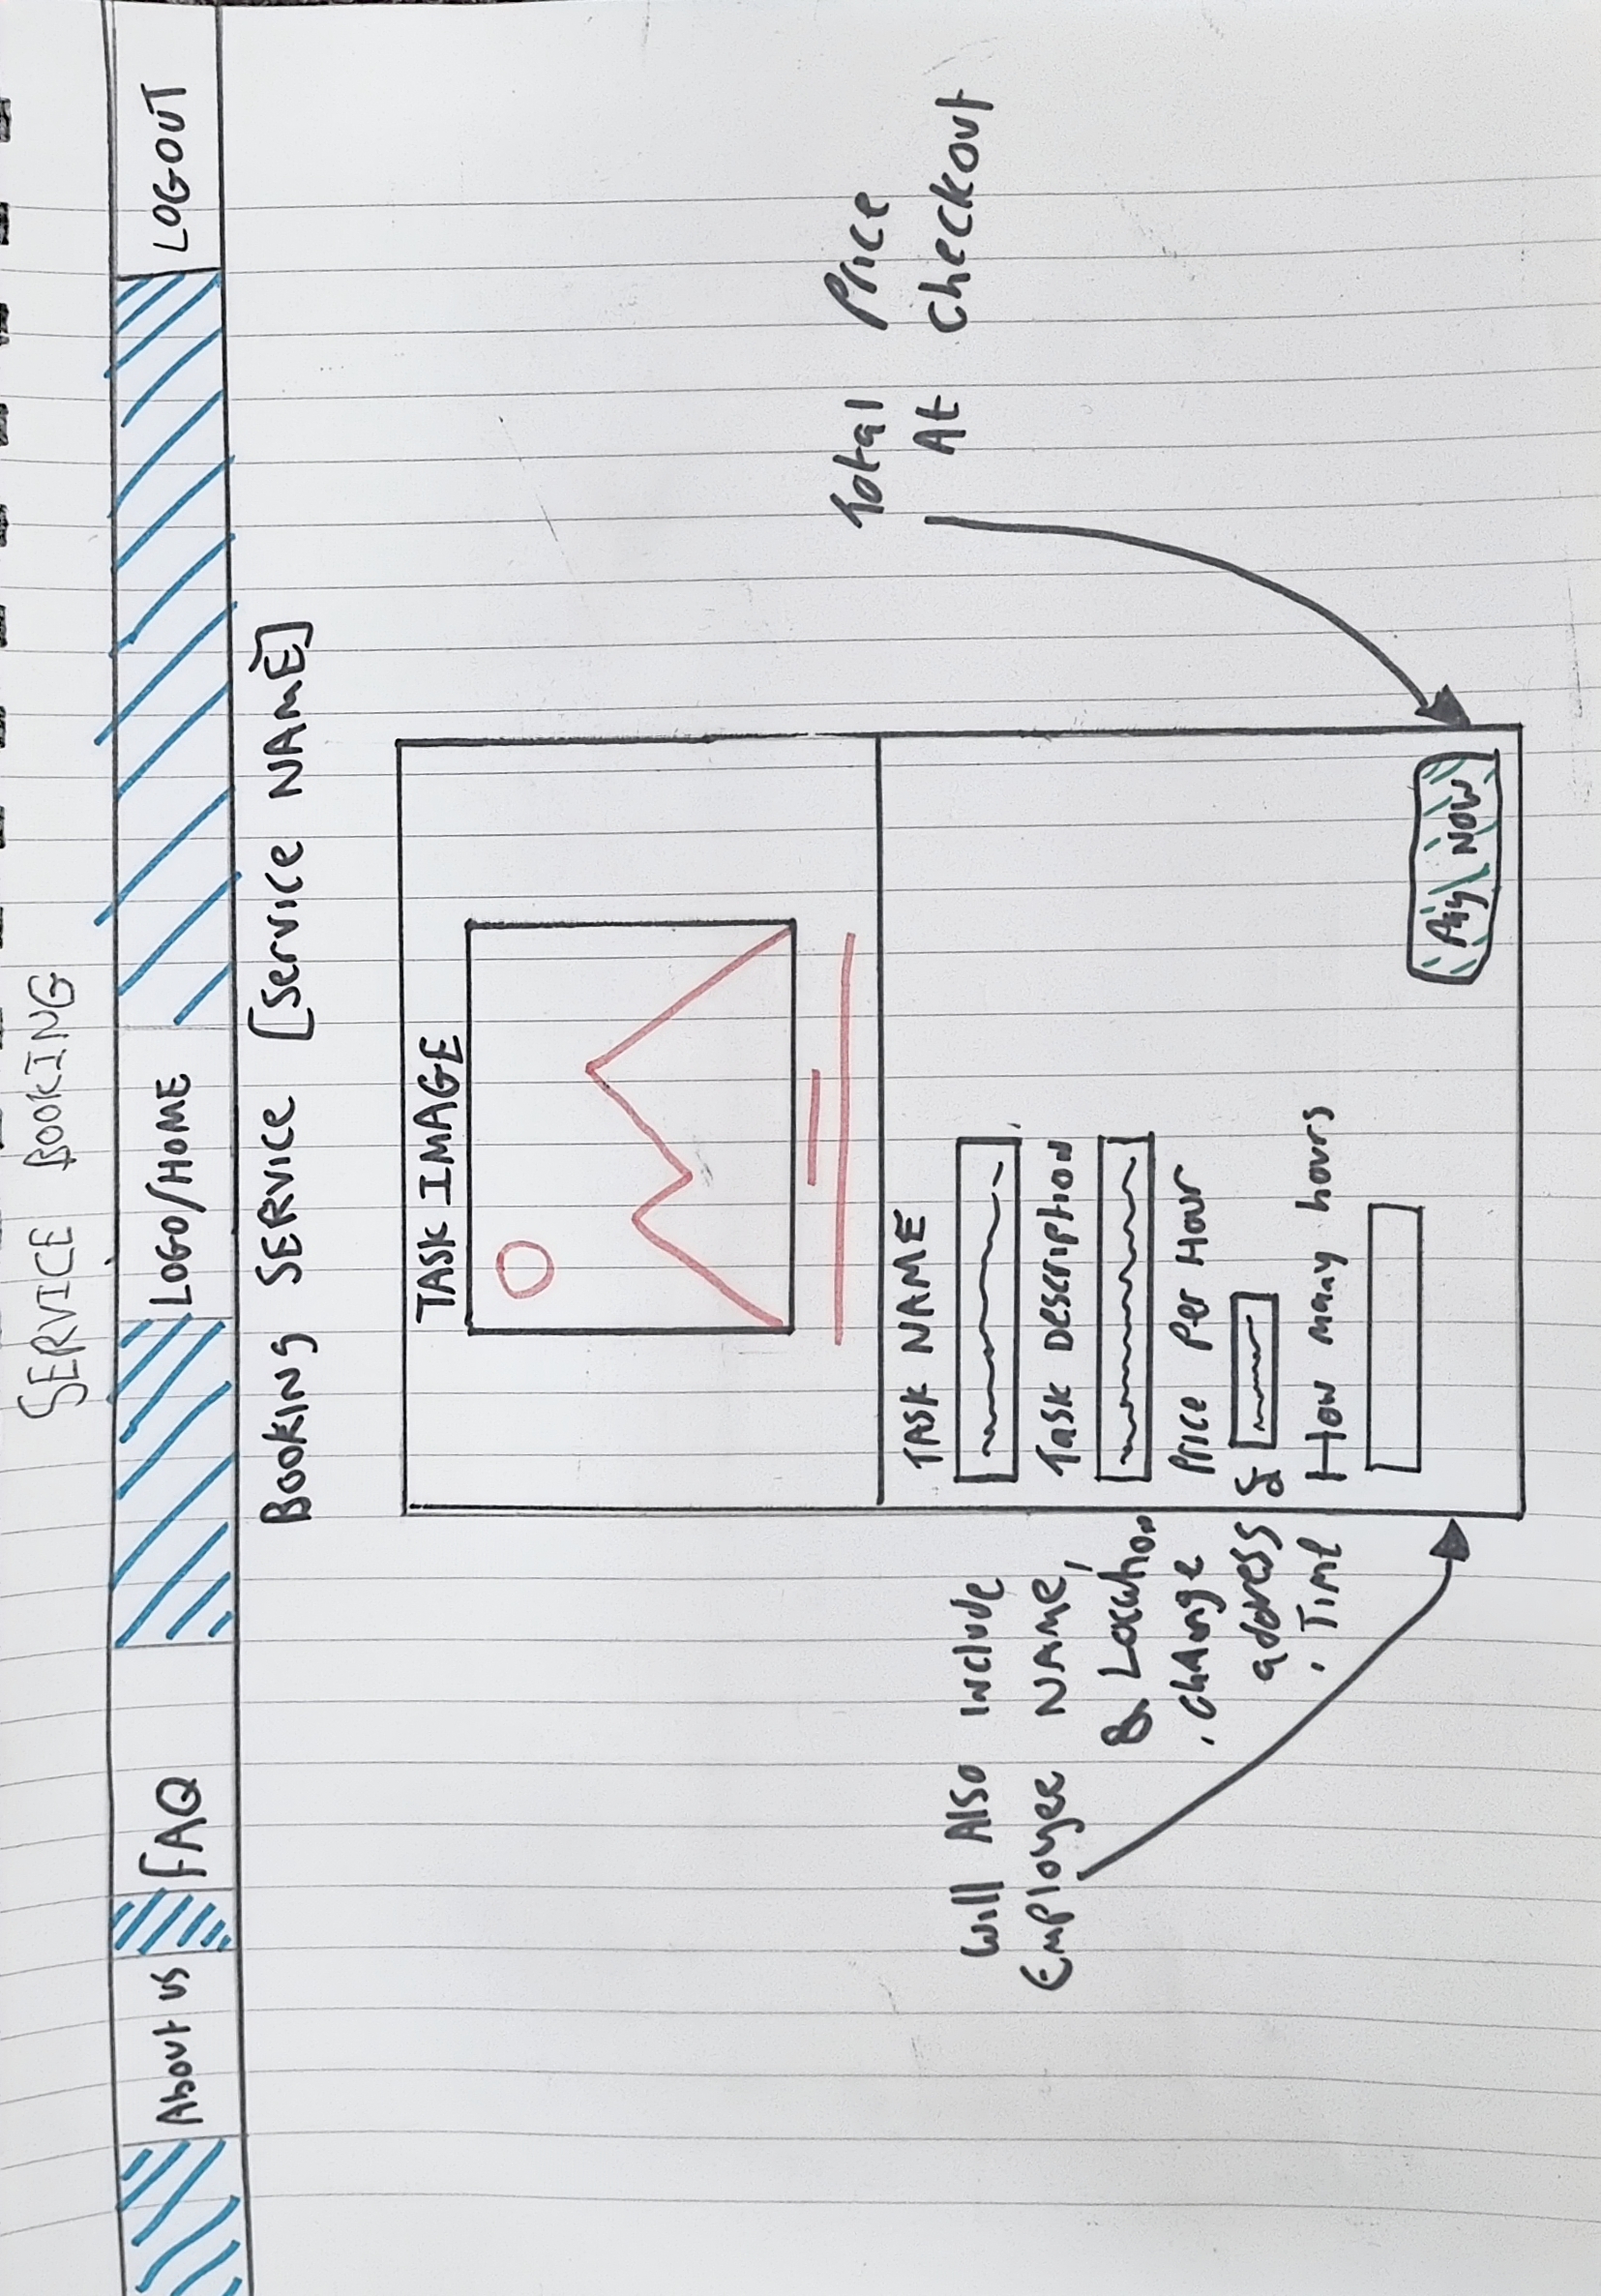 SERVICE BOOKING
About us
FAQ
LOGO/HOME
LOGOUT
Booking SERVICE [Service NAME]
TASK IMAGE
TASK NAME
Task Description
Price Per Hour
$
How many hours
Pay Now
Will Also include
Employee NAME,
& Location
, change
address
, Time
Total Price
At Checkout